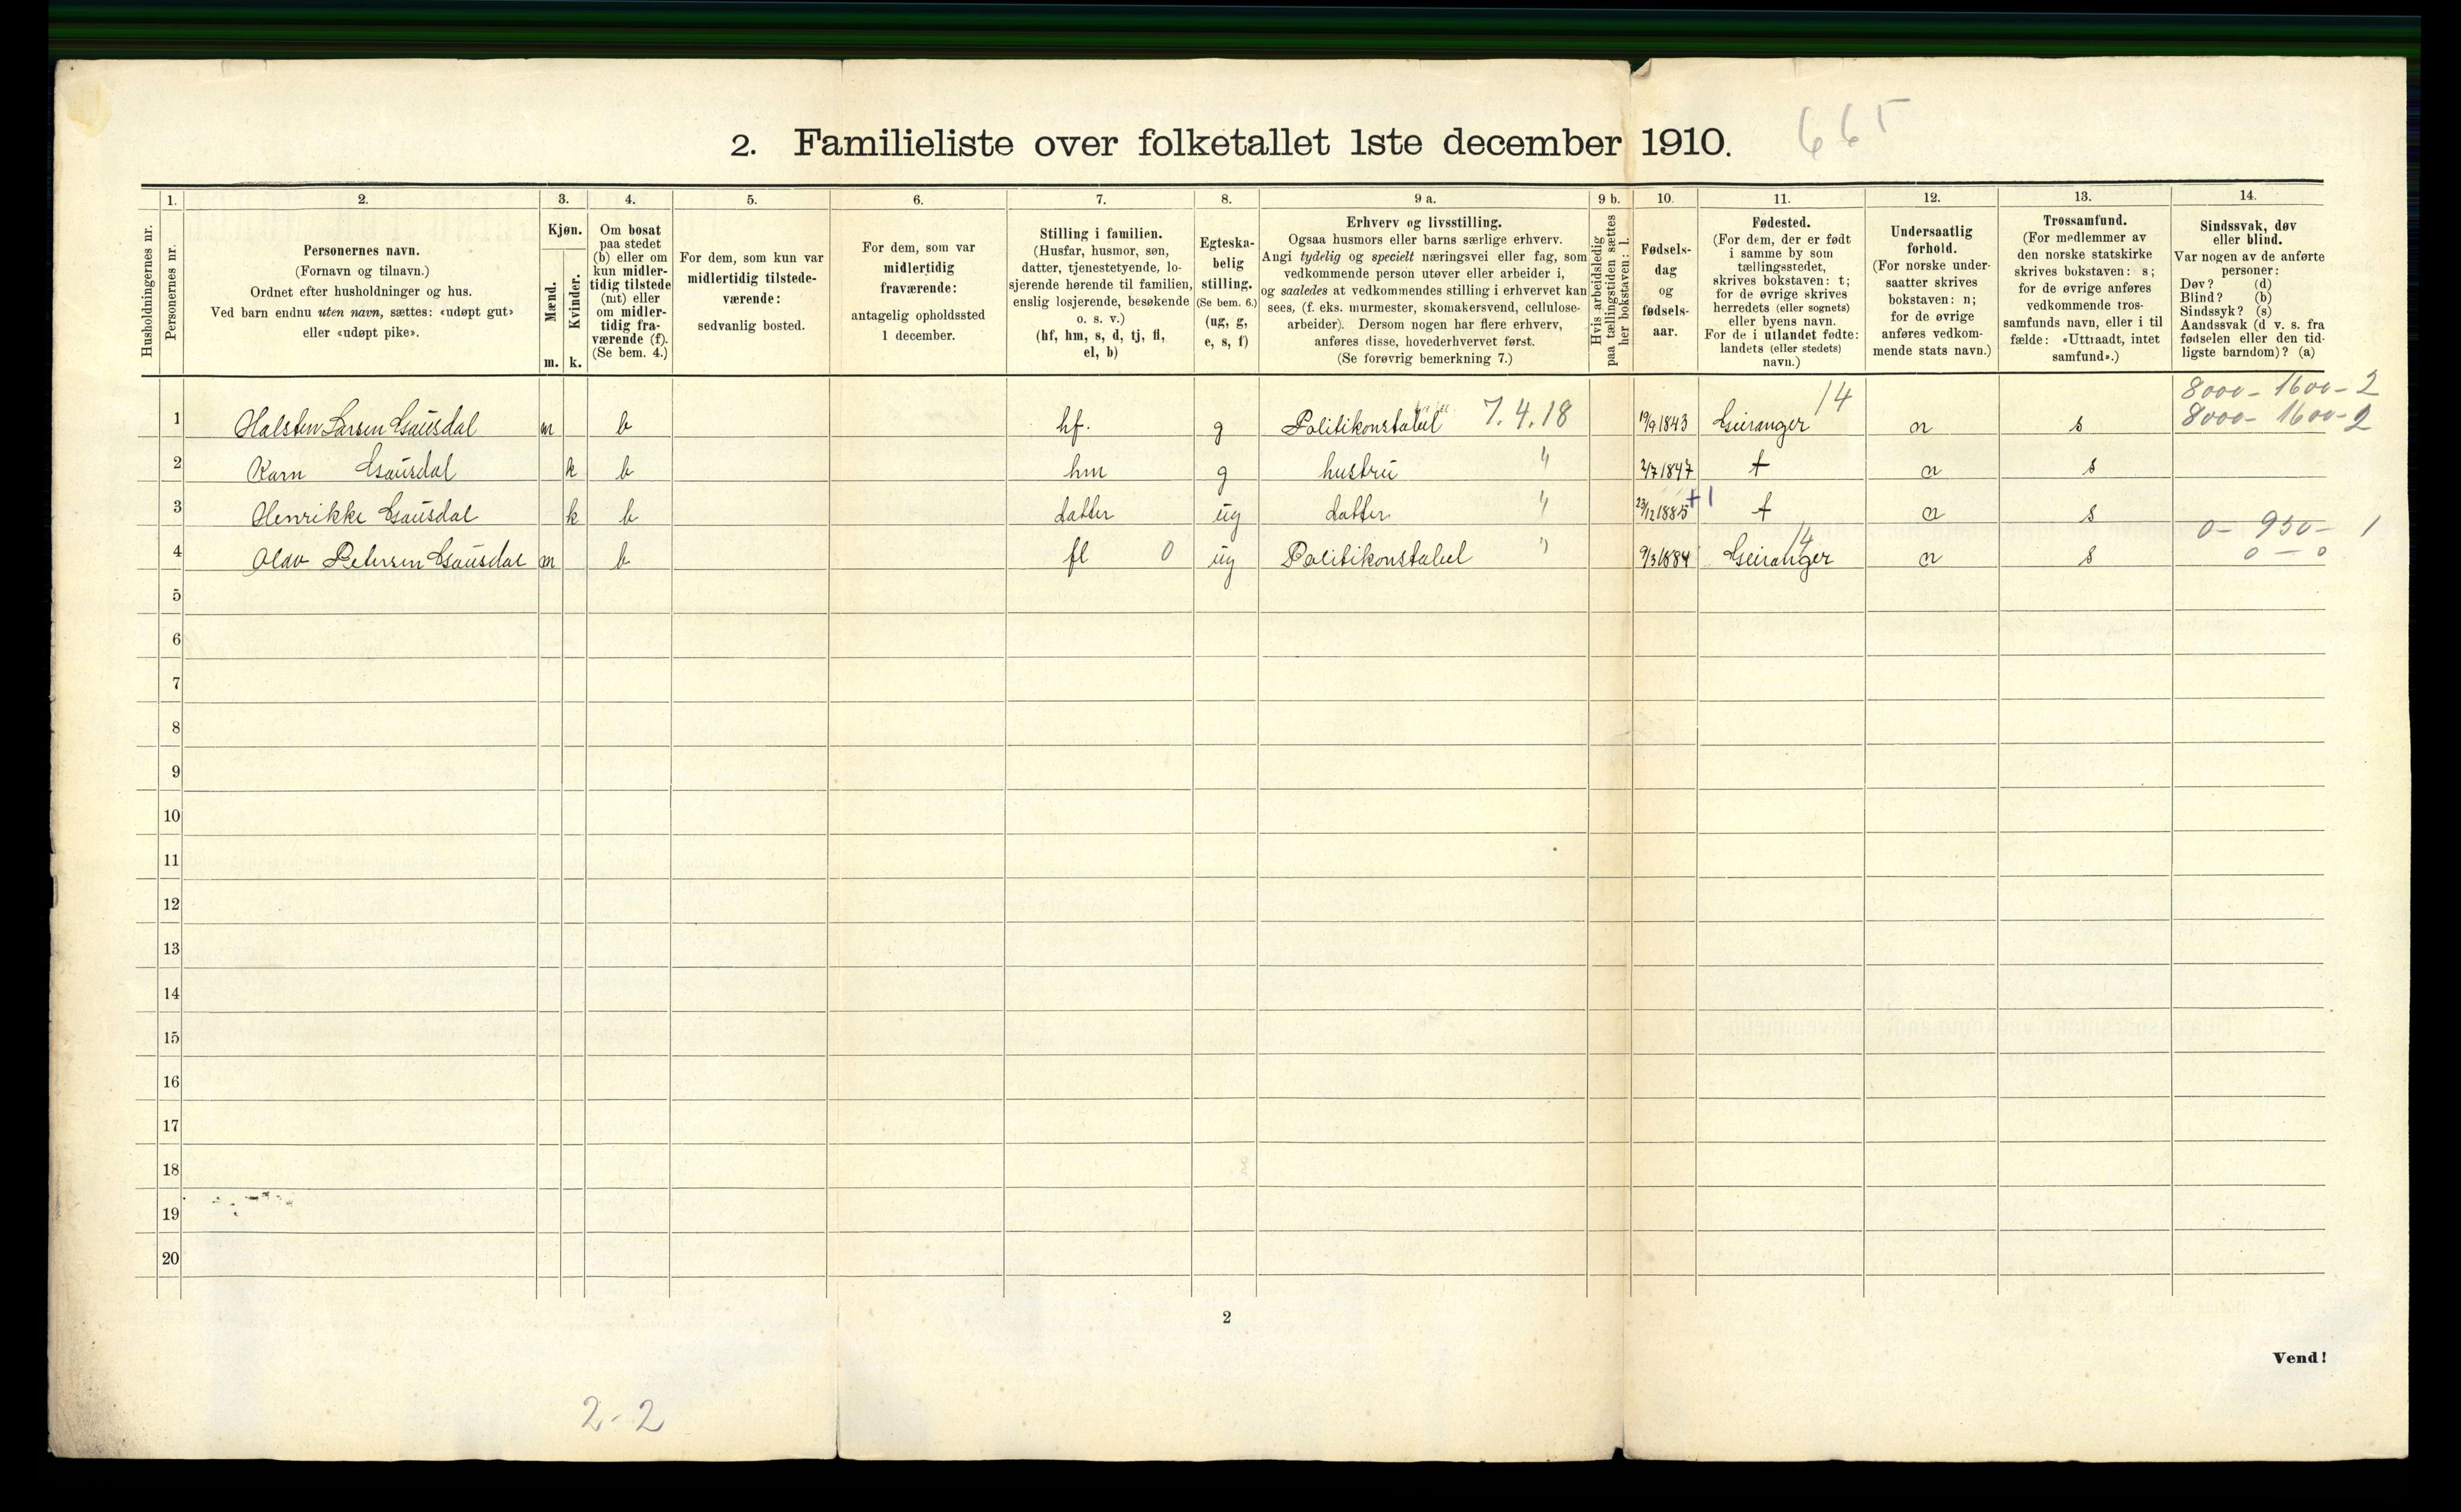 2. Familieliste over folketallet 1ste december 1910.
665
Husholdningernes nr.
1. Personernes nr.
2. Personernes navn. (Fornavn og tilnavn.) Ordnet efter husholdninger og hus. Ved barn endnu uten navn, sættes: «udøpt gut» eller «udøpt pike».
3. Kjøn. Mænd. m. Kvinder. k.
4. Om bosat paa stedet (b) eller om kun midlertidig tilstede (mt) eller om midlertidig fraværende (f). (Se bem. 4.)
5. For dem, som kun var midlertidig tilstedeværende: sedvanlig bosted.
6. For dem, som var midlertidig fraværende: antagelig opholdssted 1 december.
7. Stilling i familien. (Husfar, husmor, søn, datter, tjenestetyende, losjerende hørende til familien, enslig losjerende, besøkende o. s. v.) (hf, hm, s, d, tj, fl, el, b)
8. Egteskabelig stilling. (Se bem. 6.) (ug, g, e, s, f)
9 a. Erhverv og livsstilling. Ogsaa husmors eller barns særlige erhverv. Angi tydelig og specielt næringsvei eller fag, som vedkommende person utøver eller arbeider i, og saaledes at vedkommendes stilling i erhvervet kan sees, (f. eks. murmester, skomakersvend, cellulosearbeider). Dersom nogen har flere erhverv, anføres disse, hovederhvervet først. (Se forøvrig bemerkning 7.)
9 b. Hvis arbeidsledig paa tællingstiden sættes her bokstaven: l.
10. Fødselsdag og fødselsaar.
11. Fødested. (For dem, der er født i samme by som tællingsstedet, skrives bokstaven: t; for de øvrige skrives herredets (eller sognets) eller byens navn. For de i utlandet fødte: landets (eller stedets) navn.)
12. Undersaatlig forhold. (For norske undersaatter skrives bokstaven: n; for de øvrige anføres vedkommende stats navn.)
13. Trossamfund. (For medlemmer av den norske statskirke skrives bokstaven: s; for de øvrige anføres vedkommende trossamfunds navn, eller i tilfælde: «Uttraadt, intet samfund».)
14. Sindssvak, døv eller blind. Var nogen av de anførte personer: Døv? (d) Blind? (b) Sindssyk? (s) Aandssvak (d v. s. fra fødselen eller den tidligste barndom)? (a)
14 8000- 1600- 2
1 Halsten Larsen Gausdal m b hf. g Politikonstabel 7.4.18 19/9 1843 Geiranger n s 8000- 1600- 2
2 Karn Gausdal k b hm g hustru " 2/7 1847 t n s
3 Henrikke Gausdal k b datter ug datter " 23/12 1885 +1 t n s
14 0- 950- 1
4 Olav Petersen Gausdal m b fl 0 ug Politikonstabel " 9/3 1884 Geiranger n s 0 - 0
5
6
7
8
9
10
11
12
13
14
15
16
17
18
19
20
2
Vend!
2-2